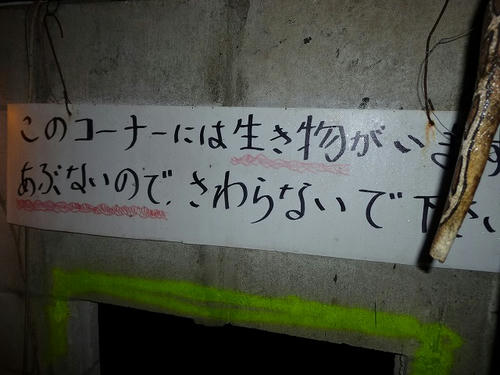 このコーナーには生き物がいます
あぶないので、さわらないで下さい